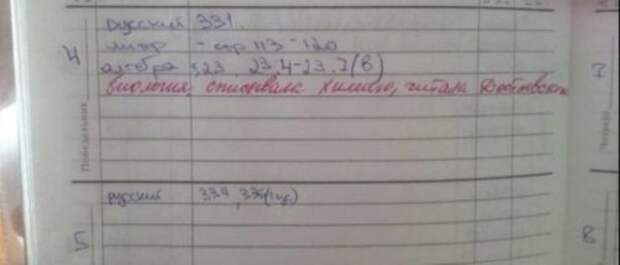 4
русский 331.
литер - стр 113-120
алгебра §23 23.4-23.7(в)
биология, списывала химию, читала Достоевского
Понедельник
русский 334, 335(
5
7
Четверг
8